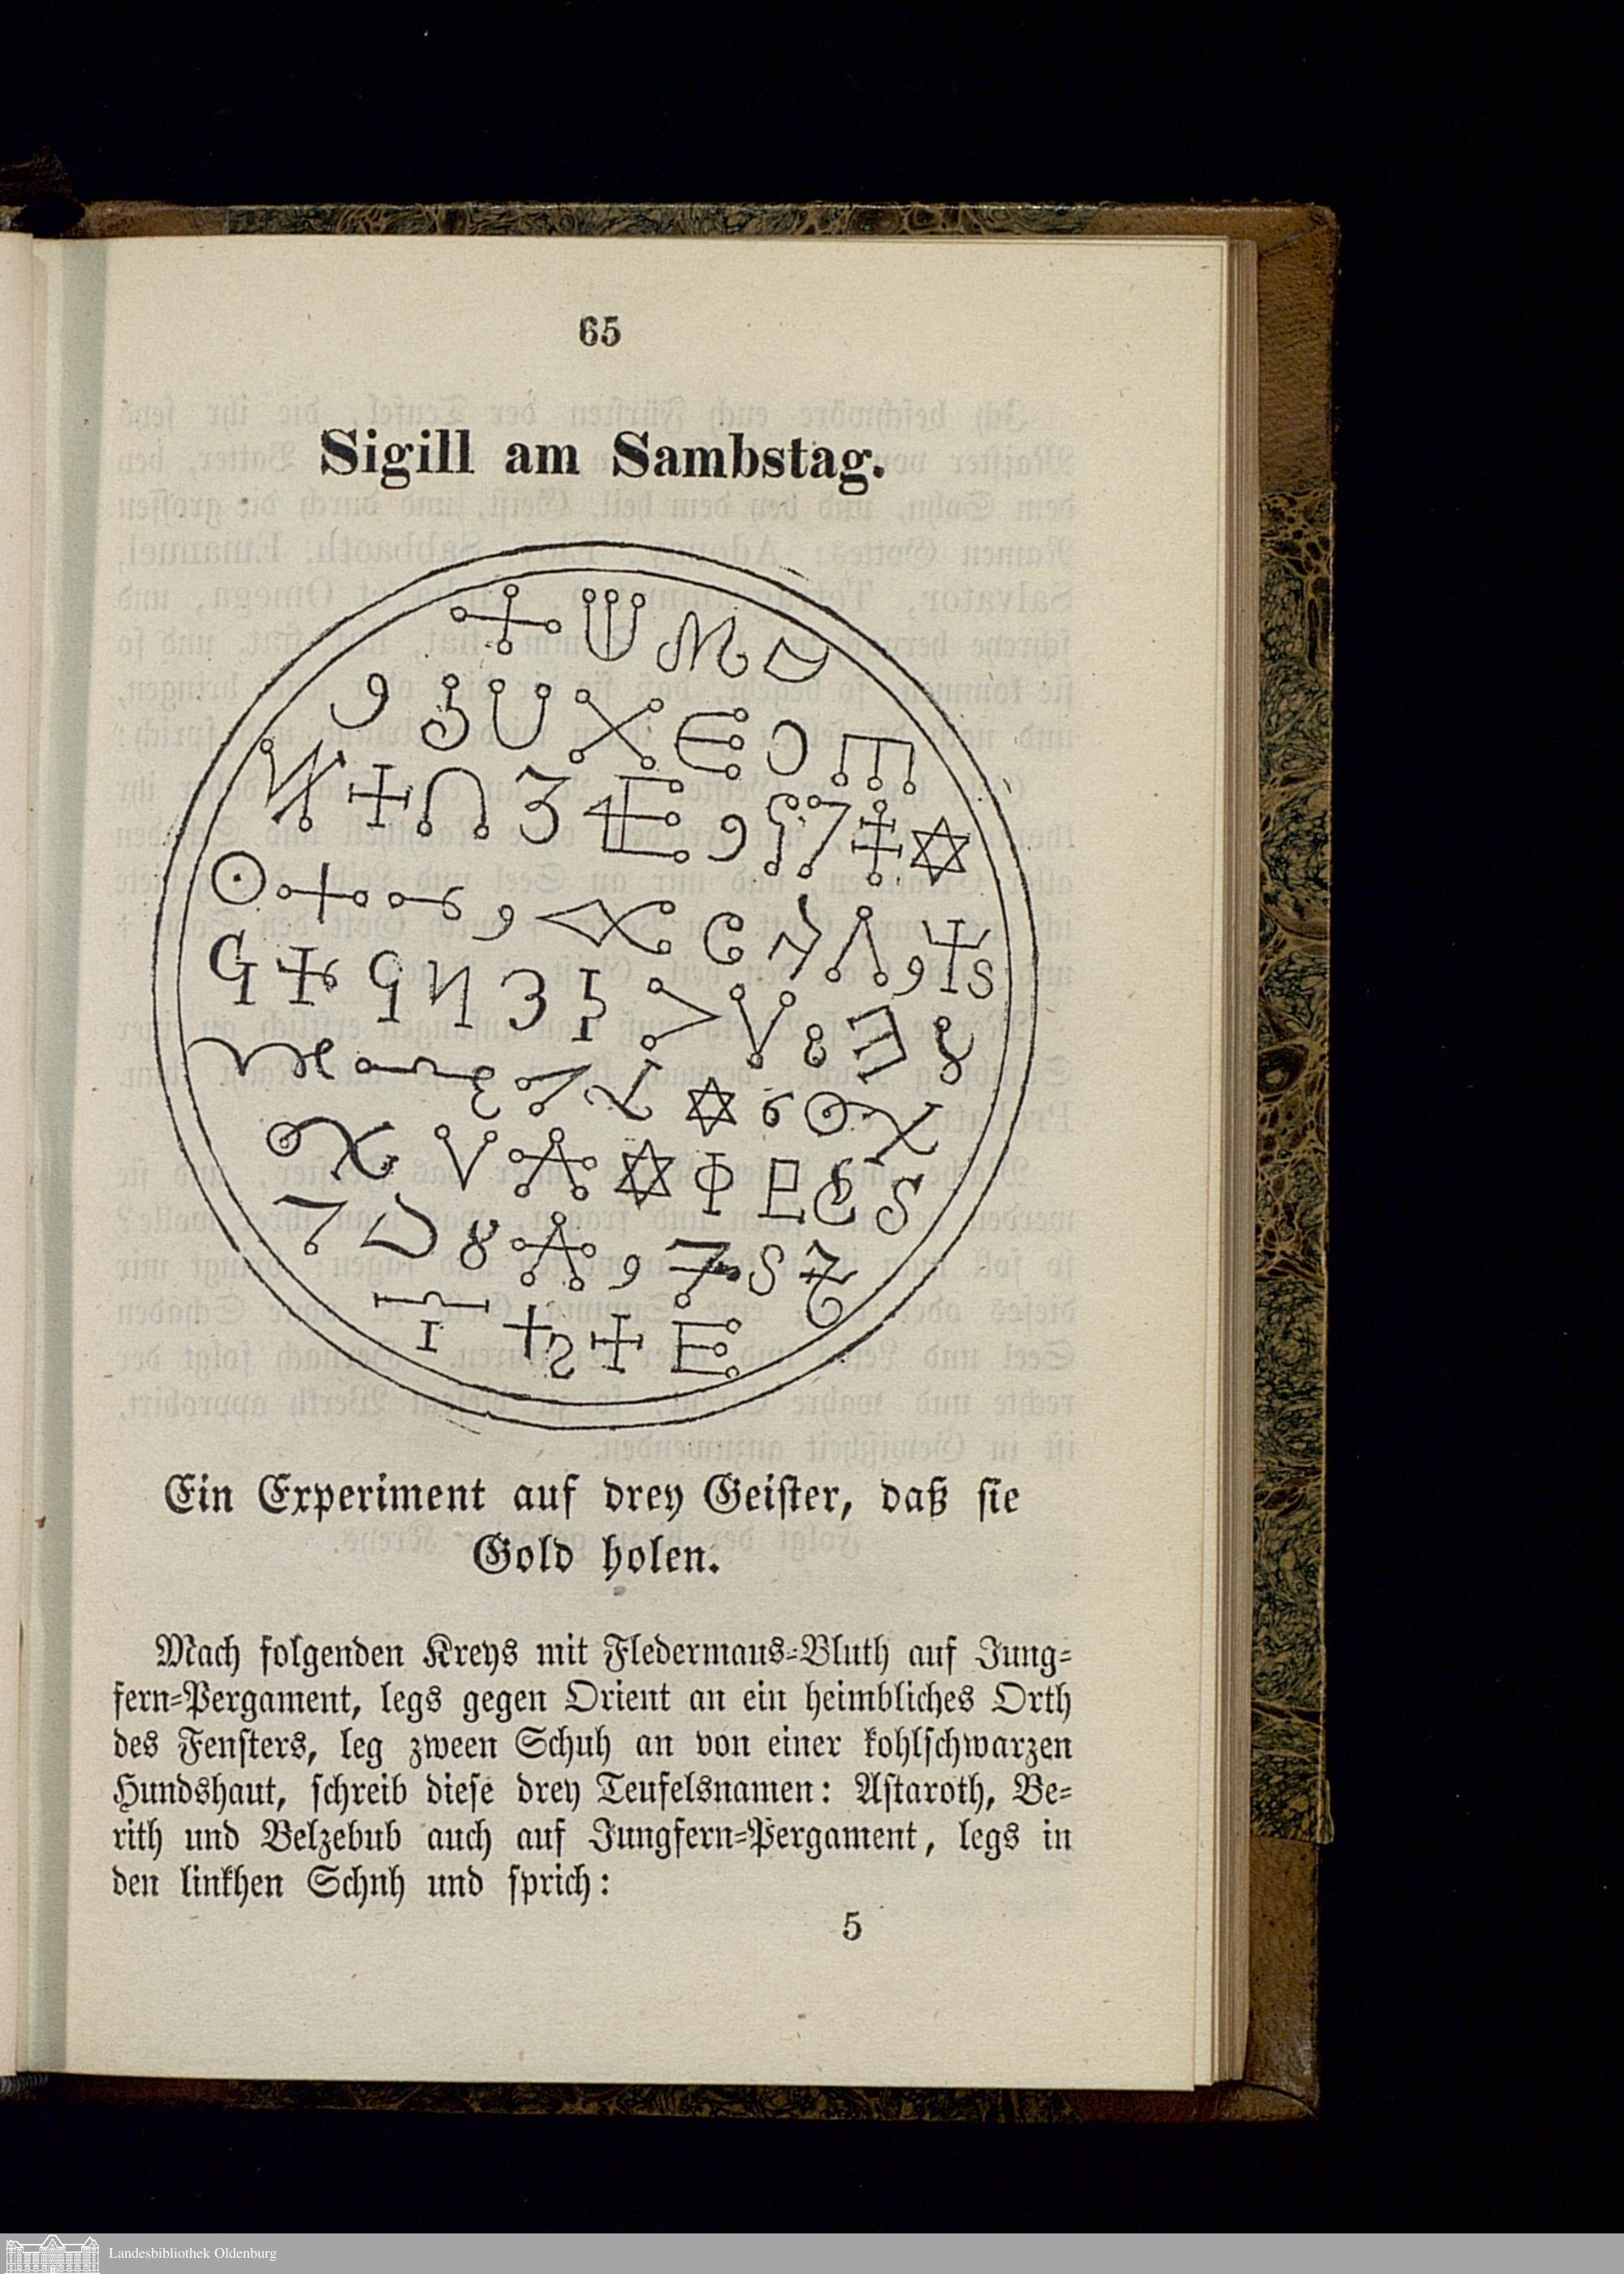 65
Sigill am Sambstag.
Ein Experiment auf drey Geister, daß sie
Gold holen.
Mach folgenden Kreys mit Fledermaus-Bluth auf Jung-
fern-Pergament, legs gegen Orient an ein heimbliches Orth
des Fensters, leg zween Schuh an von einer kohlschwarzen
Hundshaut, schreib diese drey Teufelsnamen: Astaroth, Be-
rith und Belzebub auch auf Jungfern-Pergament, legs in
den linkhen Schnh und sprich:
5
Landesbibliothek Oldenburg